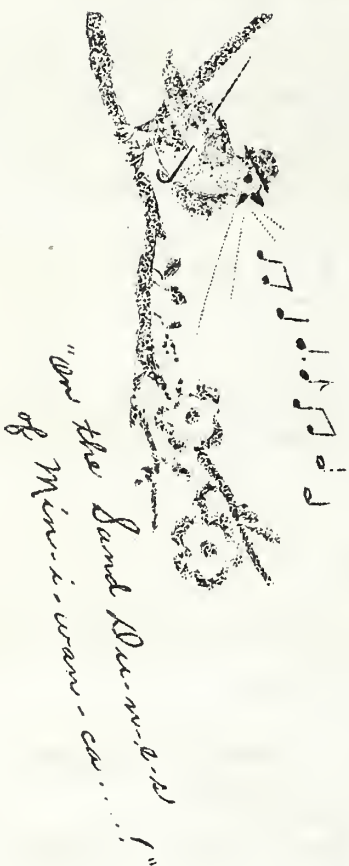 "On the Sand Du-n-e-s
of Min-i-wan-ca....!"